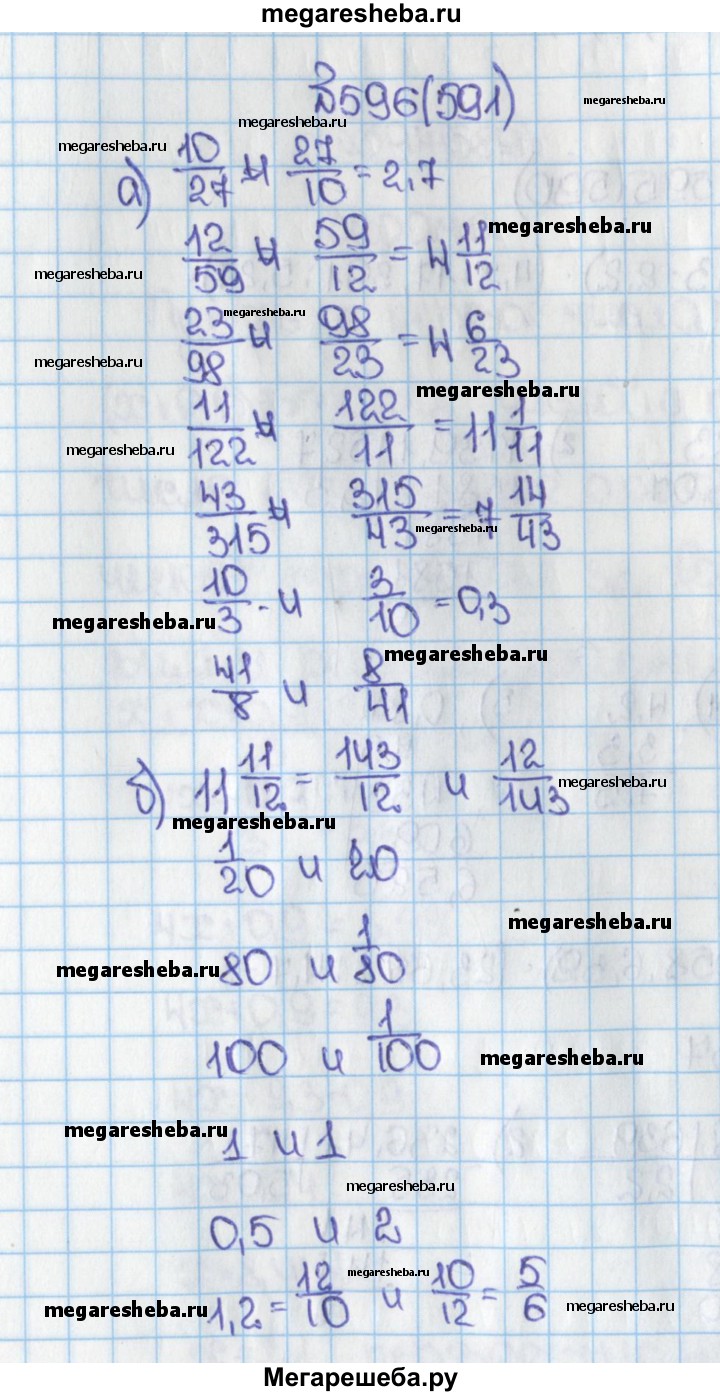 megaresheba.ru
№596(591) megaresheba.ru
megaresheba.ru
megaresheba.ru
а) 10/27 и 27/10 = 2,7
megaresheba.ru
12/59 и 59/12 = 4 11/12
megaresheba.ru
megaresheba.ru
23/98 и 98/23 = 4 6/23
megaresheba.ru
megaresheba.ru
11/122 и 122/11 = 11 1/11
megaresheba.ru
43/315 и 315/43 = 7 14/43
megaresheba.ru
10/3 и 3/10 = 0,3
megaresheba.ru
megaresheba.ru
41/8 и 8/41
б) 11 11/12 = 143/12 и 12/143
megaresheba.ru
megaresheba.ru
1/20 и 20
megaresheba.ru
megaresheba.ru
80 и 1/80
100 и 1/100
megaresheba.ru
megaresheba.ru
1 и 1
megaresheba.ru
0,5 и 2
megaresheba.ru
1,2 = 12/10 и 10/12 = 5/6
megaresheba.ru
megaresheba.ru
Мегарешеба.ру